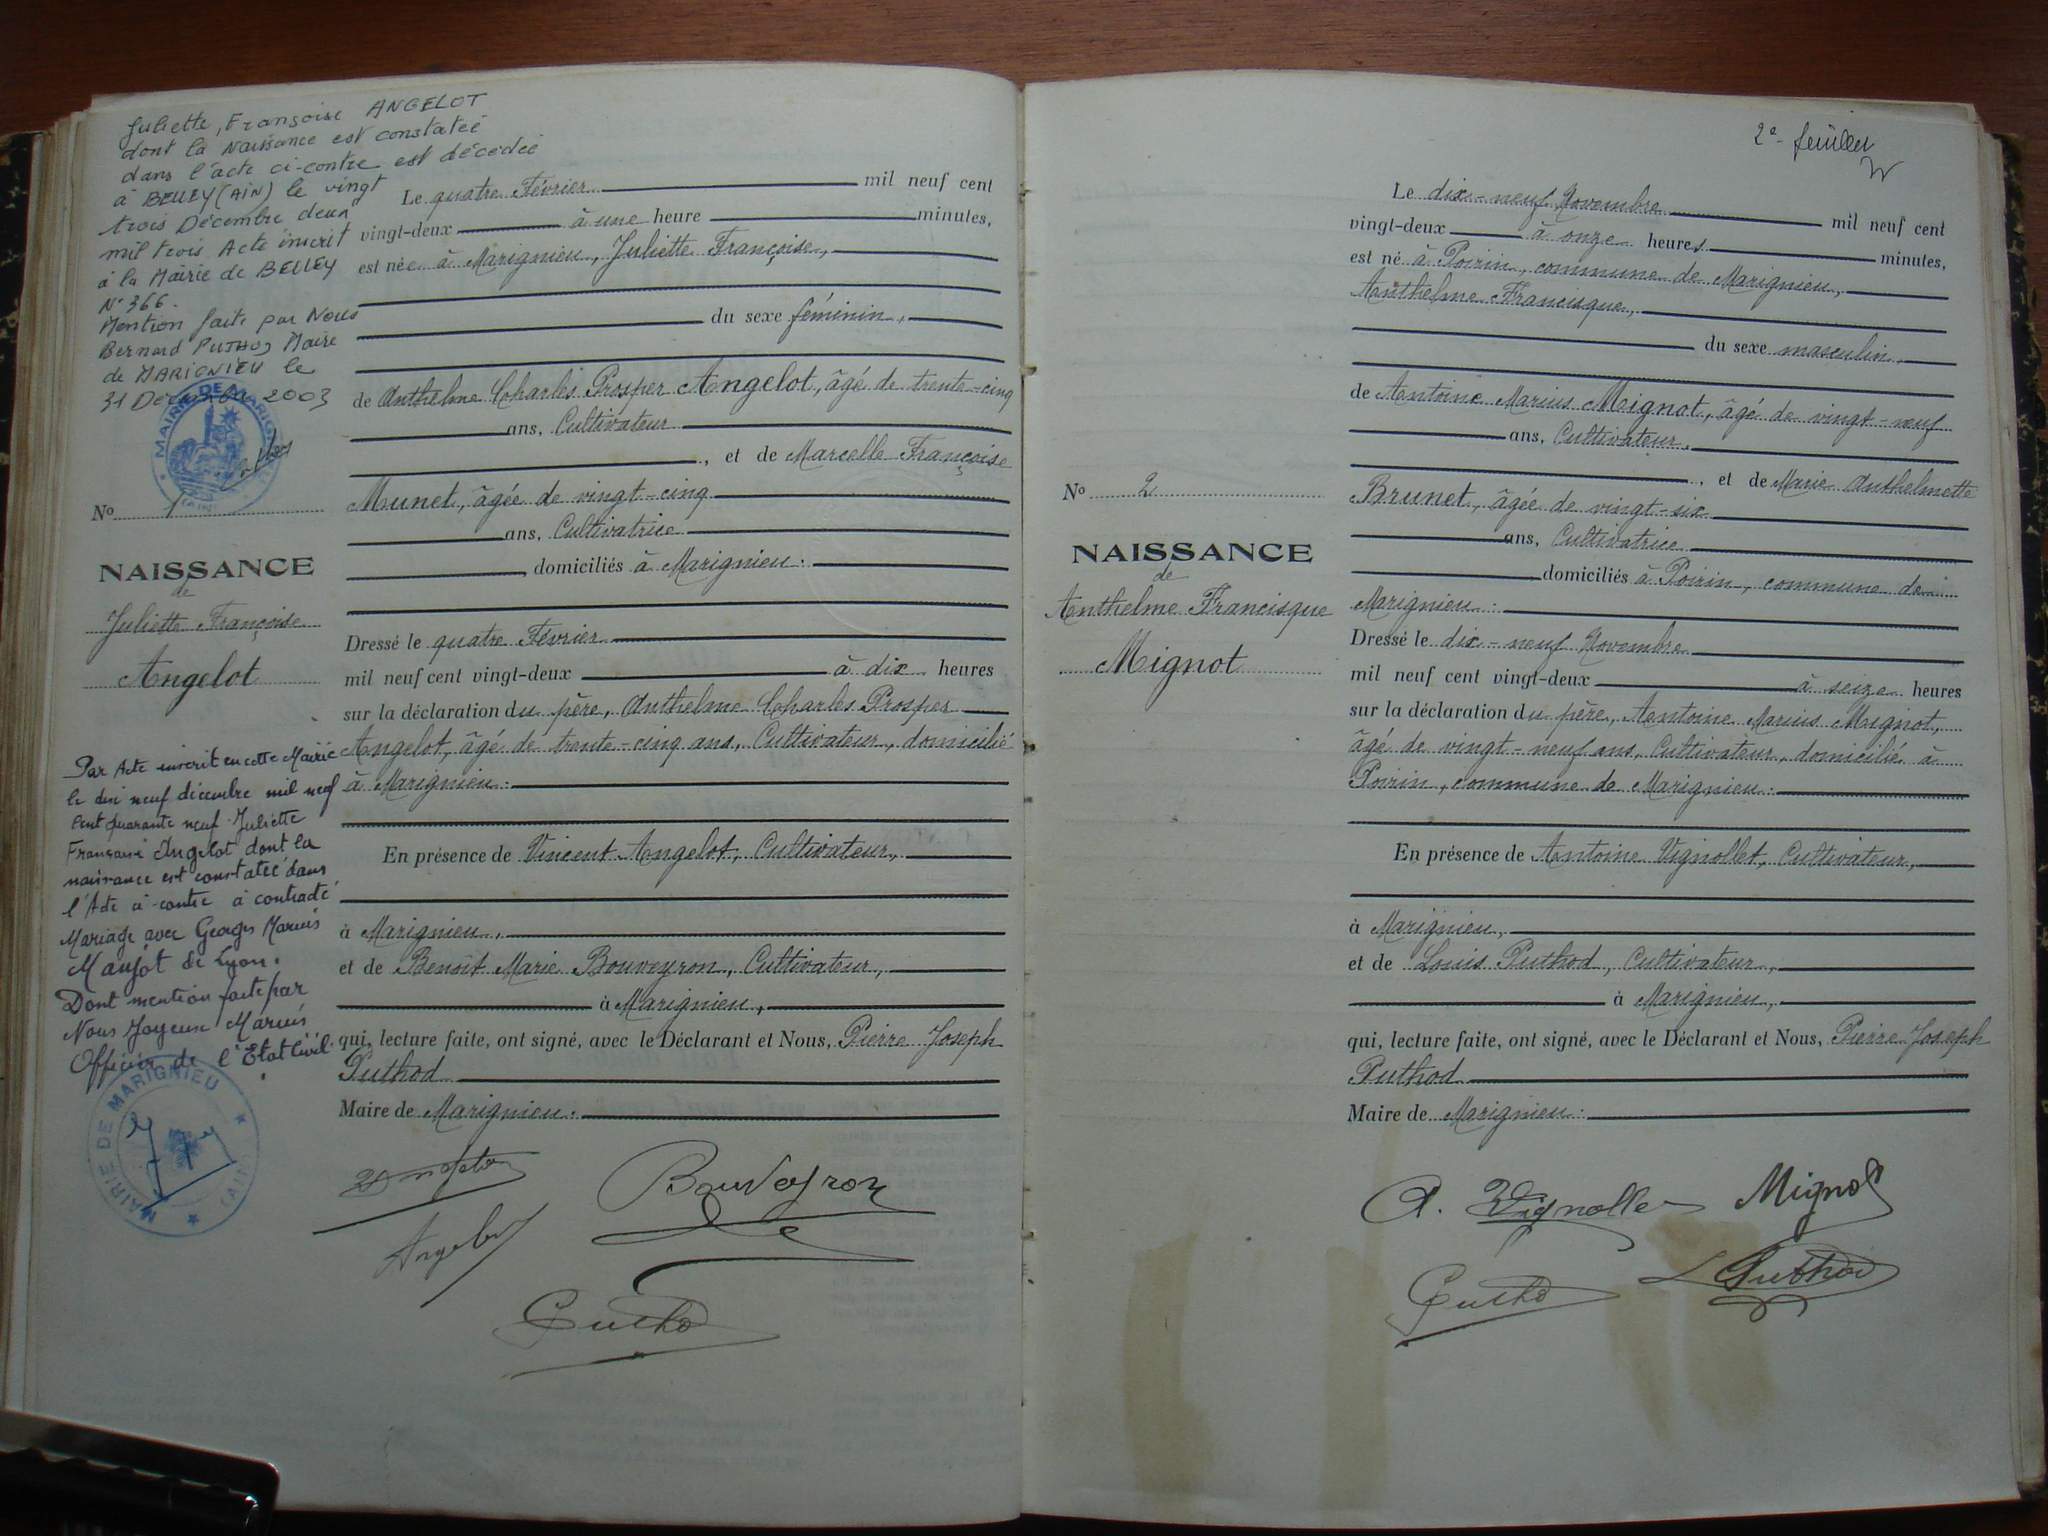 Juliette, Françoise ANGELOT
dont la Naissance est constatée
dans l'acte ci-contre est décédée
à BELLEY (AIN) le vingt
trois Décembre deux
mil trois Acte inscrit
à la Mairie de BELLEY
N° 366.
Mention faite par Nous
Bernard PUTHOD Maire
de MARIGNIEU le
31 Décembre 2003
MAIRIE DE MARIGNIEU
(AIN)
No 1
NAISSANCE
de
Juliette Françoise
Angelot
Par Acte inscrit en cette Mairie
le dix neuf décembre mil neuf
Cent quarante neuf Juliette
Françoise Angelot dont la
naissance est constatée dans
l'Acte ci-contre à contracté
Mariage avec Georges Marius
de Lyon.
Dont mention faite par
Nous Joyeux Marius
Officier de l'Etat Civil.
MAIRIE DE MARIGNIEU
(AIN)
Le quatre Février mil neuf cent
vingt-deux à une heure minutes,
est née à Marignieu, Juliette Françoise,
du sexe féminin,
de Anthelme Charles Prosper Angelot, âgé de trente-cinq
ans, Cultivateur
, et de Marcelle Françoise
Munet, âgée de vingt-cinq
ans, Cultivatrice
, domiciliés à Marignieu.
Dressé le quatre Février
mil neuf cent vingt-deux à dix heures
sur la déclaration du père, Anthelme Charles Prosper
Angelot, âgé de trente-cinq ans, Cultivateur, domicilié
à Marignieu.
En présence de Vincent Angelot, Cultivateur,
à Marignieu,
et de Benoît Marie Bouveyron, Cultivateur,
à Marignieu,
qui, lecture faite, ont signé, avec le Déclarant et Nous, Pierre Joseph
Puthod
Maire de Marignieu.
Angelot
Bouveyron
Angelot
Puthod
2e feuillet
No 2
NAISSANCE
de
Anthelme Francisque
Mignot
Le dix-neuf Novembre mil neuf cent
vingt-deux à onze heures minutes,
est né à Poirin, commune de Marignieu,
Anthelme Francisque,
du sexe masculin,
de Antoine Marius Mignot, âgé de vingt-neuf
ans, Cultivateur,
, et de Marie Anthelmette
Brunet, âgée de vingt-six
ans, Cultivatrice
domiciliés à Poirin, commune de
Marignieu.
Dressé le dix-neuf Novembre
mil neuf cent vingt-deux à seize heures
sur la déclaration du père, Antoine Marius Mignot,
âgé de vingt-neuf ans, Cultivateur, domicilié à
Poirin, commune de Marignieu.
En présence de Antoine Vignollet, Cultivateur,
à Marignieu,
et de Louis Puthod, Cultivateur,
à Marignieu,
qui, lecture faite, ont signé, avec le Déclarant et Nous, Pierre Joseph
Puthod
Maire de Marignieu.
A. Vignollet
Mignot
Puthod
L Puthod